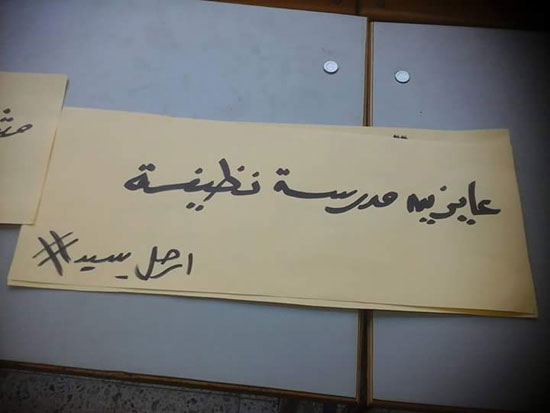 عايزين مدرسة نظيفة
ارحل يسيد#